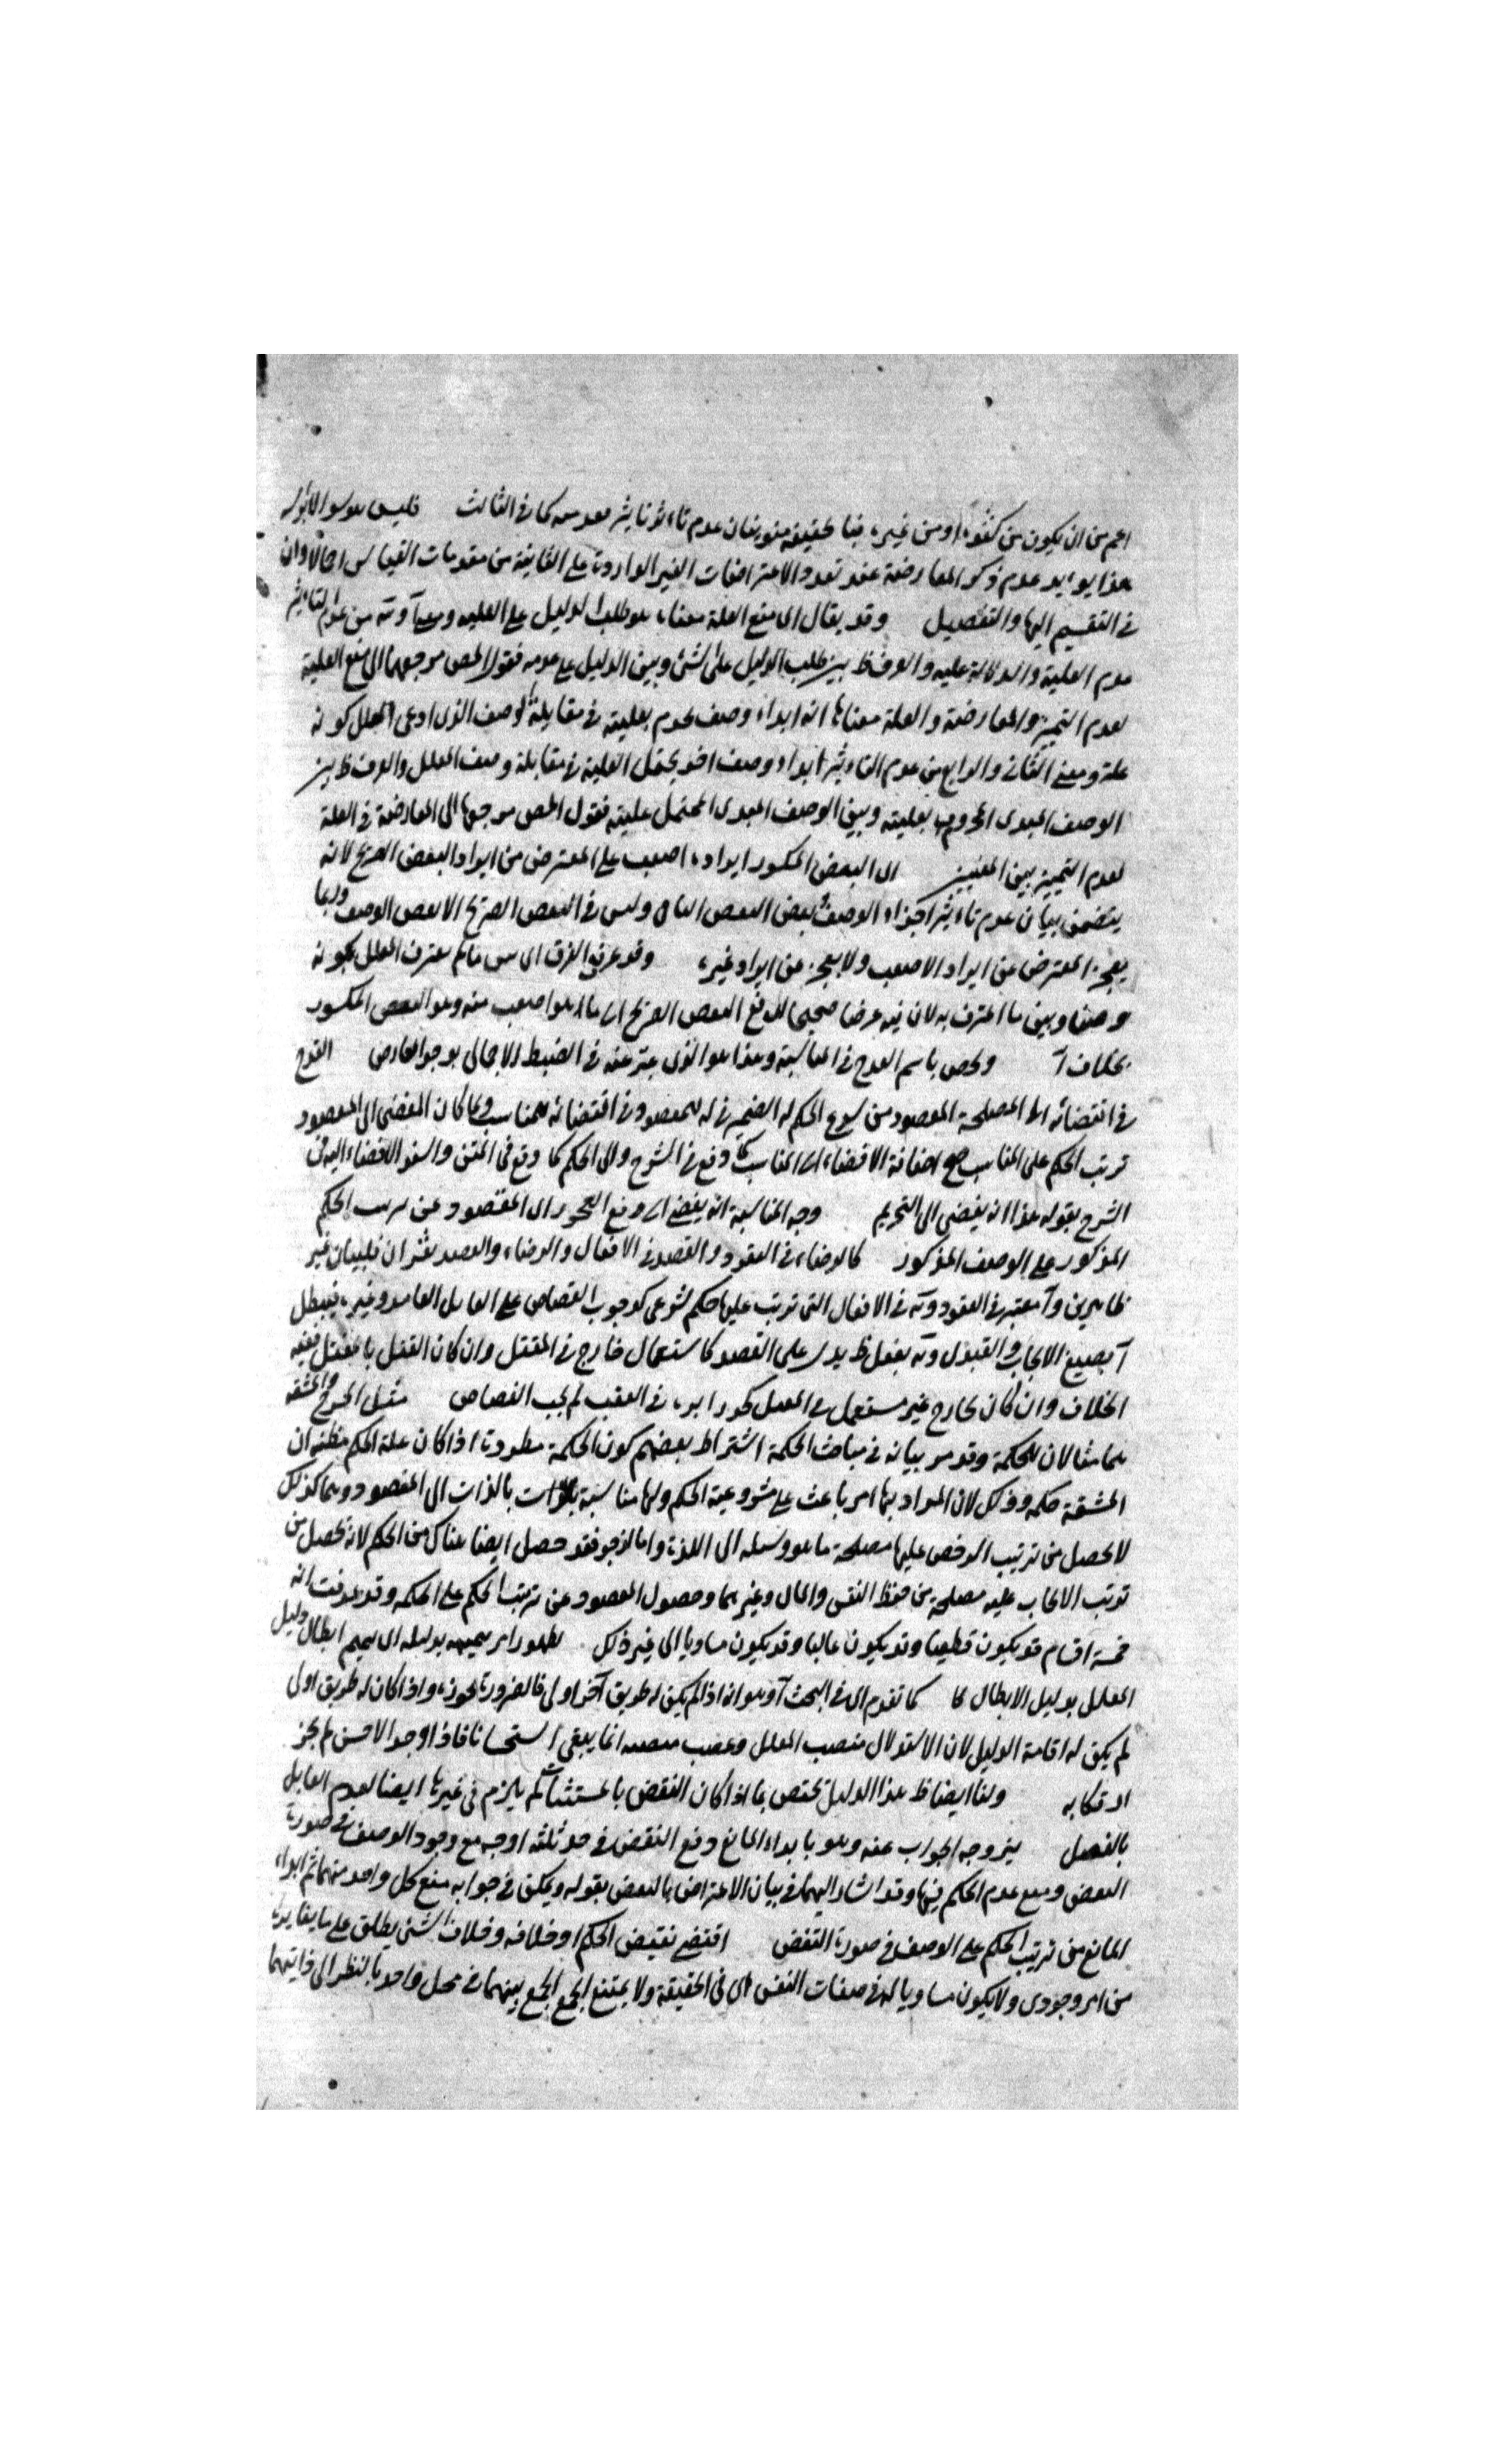 اعم من ان يكون من كفوء او من غيره فبا لحقيقة منويتان عدم تاءثير معد سه كما فى الثالث فليس هو سوال لأنه
هذا يوءيد عدم ذكر المعارضة عند تعدد الاعتراضات الغير الواردة على الثانية من مقدمات القياس اجمالا وان
فى التقسيم اليها والتفصيل وقد يقال ان منع العلة معناه هو طلب الدليل على العلية ومعنى آ و من عدم التاءثير
عدم العلية والدلالة عليه والفرق ظ بين طلب الدليل على الشئ وبين الدليل على عدمه فقول المص مرجعهما الى منع العلية
لعدم التميز والمعارضة والعلة معناها انه ابداء وصف يجزم بعليته فى مقابلة الوصف الذى ادعى المعلل كونه
علة ومعنى الثانى والرابع من عدم التاءثير ابداء وصف اخر يحتمل العلية فى مقابلة وصف المعلل والفرق ظ بين
الوصف المبدى المجزوم بعليته وبين الوصف المبدى المحتمل عليته فقول المص مرجعها الى المعارضة فى العلة
لعدم التميز بين المعنيين ان البعض المكسور ايراده اصعب على المعترض من ايراد البعض الصريح لانه
يتضمن بيان عدم تاءثير اجزاء الوصف وبعض النقض الباقى وليس فى النقض الصريح الا نقض الوصف وربما
يعجز المعترض عن ايراد الاصعب ولا يعجز عن ايراد غيره وقد عرفت الفرق اى بين ما لم يعترف المعلل بكونه
وصفا وبين ما اعترف به لان فيه غرضا صحيحا لدفع النقض الصريح الى ما هو اصعب منه وهو النقض المكسور
بخلاف آ ويخص باسم القدح فى المناسبة وهذا هو الذى عبر عنه فى الضبط الاجمالى بوجود المعارض القدح
فى افضائه الى المصلحة المقصود من شرع الحكم له الضمير فى له للمقصود وفى افضائه للمناسب ولما كان المفضى الى المقصود
ترتب الحكم على المناسب صح اضافة الافضاء الى المناسب كما وقع فى الشرح والى الحكم كما وقع فى المتن واسند الافضاء اليه فى
الشرح بقوله هذا انه يفضى الى التحريم وجه المناسبة انه يفضى الى رفع الفجور اى المقصود عن ترتب الحكم
المذكور على الوصف المذكور كالرضاء فى العقود والقصد فى الافعال والرضاء والقصد يعتبران قلبيان غير
ظاهرين وآ معتبر فى العقود و فى الافعال التى ترتب عليها حكم شرعى كوجوب القصاص على القاتل العامد وغيره فيبطل
آ بصيغ الايجاب والقبول و بفعل ظ يدل على القصد كاستعمال خارج فى المقتل وان كان القتل بالمقتل ففيه
الخلاف وان كان بخارج غير مستعمل فى المقتل كجرز ابرة فى العقب لم يجب القصاص مثل الحرج والمشقة
هما مثالان للحكمة وقد مر بيانه فى مباحث الحكمة اشتراط بعضهم كون الحكمة مطردة اذا كان علة الحكم مظنة ان
المشقة حكمة وذلك لان المراد بها امر باعث على مشروعية الحكم ولها مناسبة بالذات الى المقصود وهما كذلك
لا يحصل من ترتيب الرخص عليها مصلحة ما هو وسيلة الى اللذة واما الزجر فقد حصل ايضا هناك من الحكم لانه يحصل من
ترتب الايجاب عليه مصلحة من حفظ النفس والمال وغيرهما وحصول المقصود عن ترتب الحكم على الحكمة وقد عرفت انه
خمسة اقسام قد يكون قطعيا وقد يكون غالبا وقد يكون مساويا الى غير ذلك لظهور امر تتميمه بدليله اى تتميم ابطال دليل
المعلل بدليل الابطال كما كما تقدم اى فى البحث آ وهو انه اذا لم يكن له طريق آخر اولى فالضرورة تجوزه واذا كان له طريق اولى
لم يكن له اقامة الدليل لان الاستدلال منصب المعلل وغصب منصبه انما يبقى استحسانا فاذا وجد الاحسن لم يجز
ارتكابه ولنا ايضا ظ هذا الدليل يختص بما اذا كان النقض بالمستثنات لم يلزم فى غيرها ايضا لعدم القايل
بالفصل بين وجه الجواب عنه وهو بابداء المانع دفع النقض فى حد ثلثة اوجه مع وجود الوصف فى صورة
النقض ومنع عدم الحكم فيها وقد اشار اليهما فى بيان الاعتراض بالنقض بقوله ويمكن فى جوابه منع كل واحد منهما ثم ابداء
المانع من ترتب الحكم على الوصف فى صورة النقض اقتضى نقيض الحكم او خلافه وخلاف الشئ يطلق على ما يغايره
من امر وجودى ولا يكون مساويا له فى صفات النفس اى فى الحقيقة ولا يمتنع الجمع الجمع بينهما فى محل واحد بالنظر الى ذاتيهما